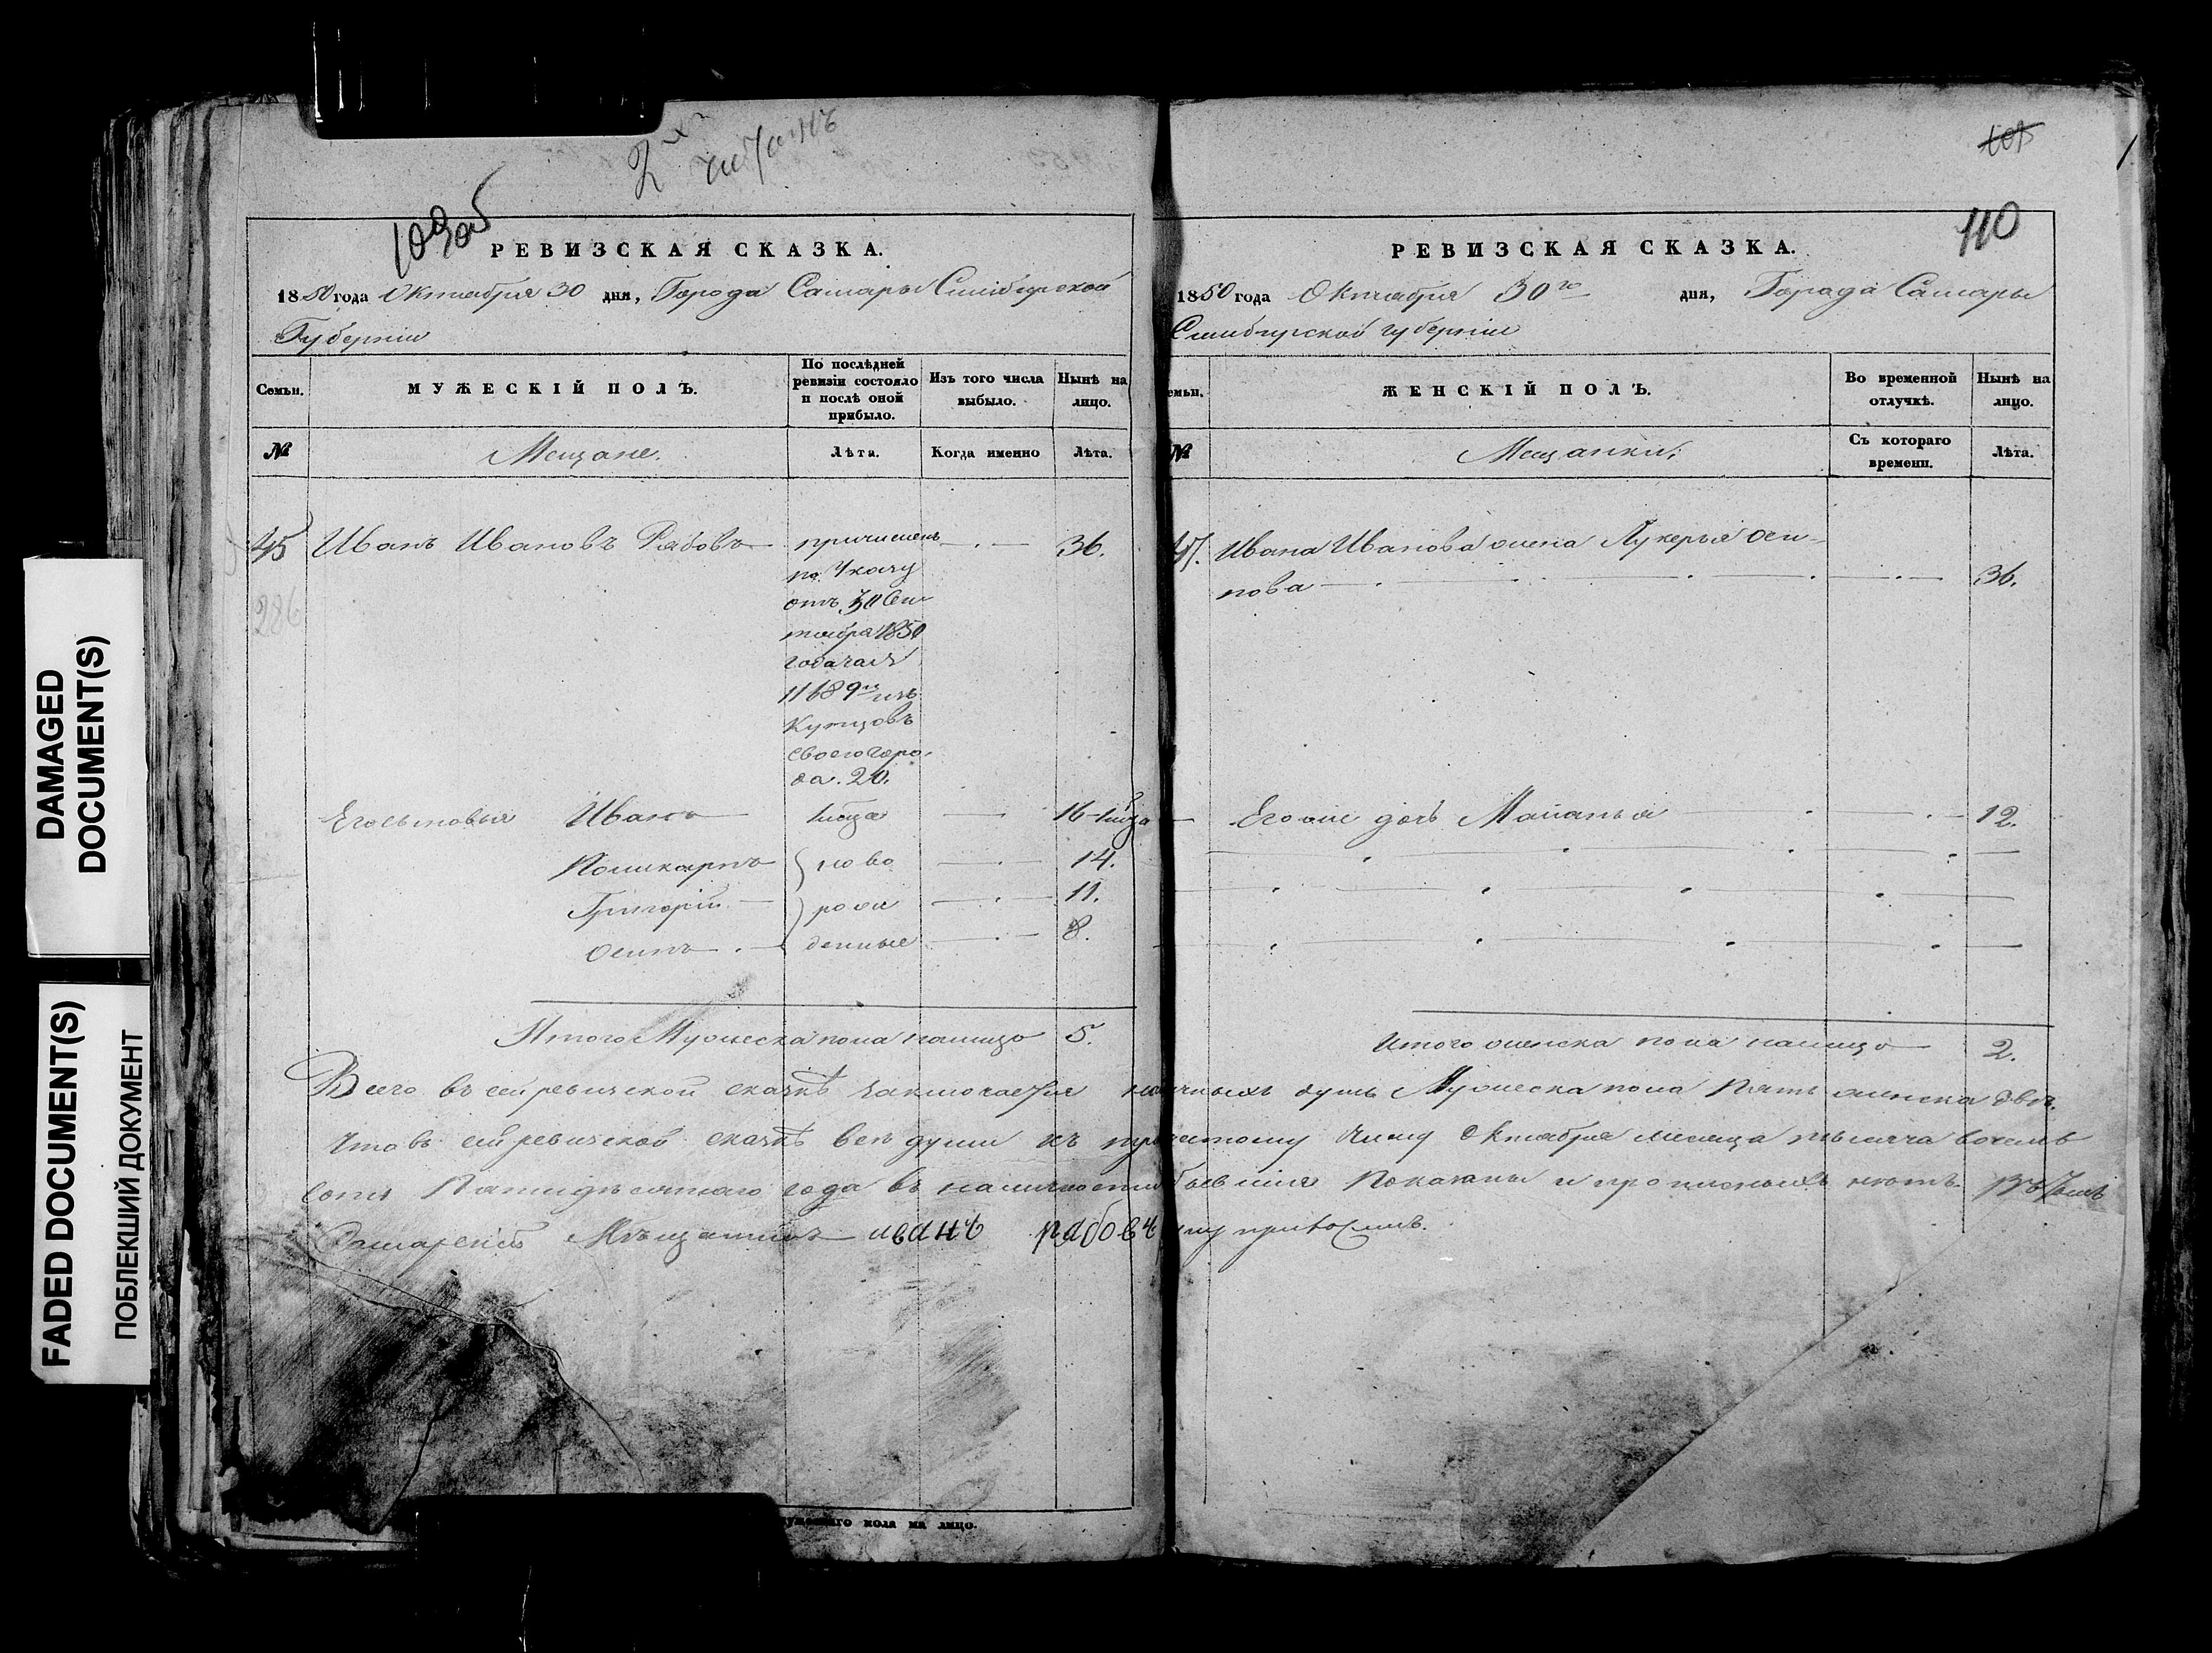 DAMAGED
DOCUMENT(S)
FADED DOCUMENT(S)
ПОБЛЕКШИЙ ДОКУМЕНТ
109 об
РЕВИЗСКАЯ СКАЗКА.
1850 года Октября 30 дня, Города Самары Симбирской
Губернiи
Семьи. МУЖЕСКIЙ ПОЛЪ. По послѣдней ревизiи состояло и послѣ оной прибыло. Изъ того числа выбыло. Нынѣ на лицо.
№ Мещане. Лѣта. Когда именно Лѣта.
45 Иванъ Ивановъ Рябовъ причисленъ 36.
по Указу
отъ 30 Сен
тября 1850
года за №
11689 изъ
Купцовъ
своего горо
да. 20.
286
Его сыновья Иванъ 1 мѣсяца 16
Поликарпъ ново 14.
Григорiй рож 11.
Осипъ денные 8.
Итого Мужеска пола налицо 5.
110
РЕВИЗСКАЯ СКАЗКА.
1850 года Октября 30го дня, Города Самары
Симбирской губернiи
ЖЕНСКIЙ ПОЛЪ. Во временной отлучкѣ. Нынѣ на лицо.
№ Мещанки. Съ котораго времени. Лѣта.
45. Ивана Иванова жена Лукерья Оси
пова 36.
Его же дочь Маланья 12.
Итого женска пола налицо 2.
Всего въ сей ревизской сказкѣ заключается наличныхъ душъ Мужеска пола Пять женска двѣ.
Что въ сей ревизской сказкѣ всѣ души къ тридцатому числу Октября месяца тысяча восемь
сотъ Пятидесятаго года въ наличности бывшiя Показаны и прописныхъ нетъ. Въ томъ
Самарскiй Мѣщанинъ иванъ рабовъ руку приложилъ.
мужескаго пола на лицо.